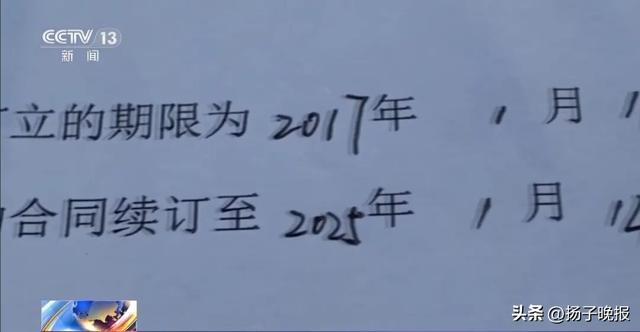 CCTV 13
新闻
订立的期限为 2017年 1月1
合同续订至 2025年 1月1
头条 @扬子晚报